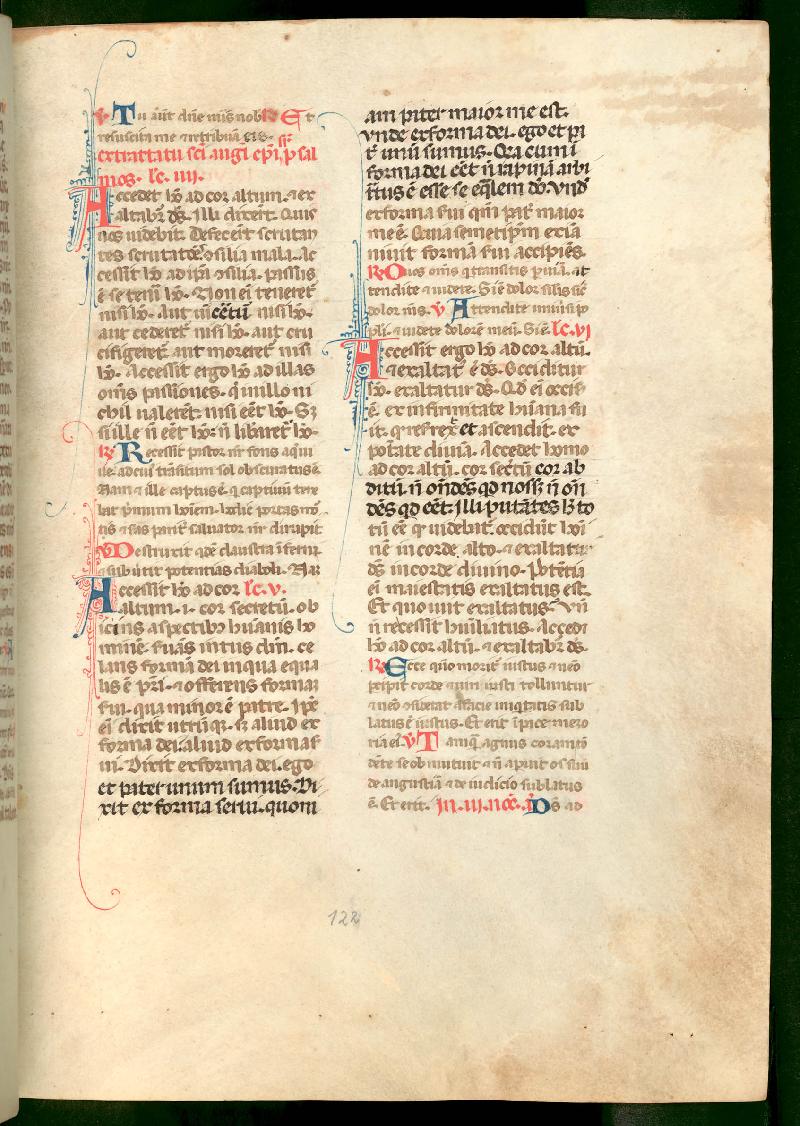 ℣ Tu aūt dñe mis nob℟ Et
resuscita me ⁊ retribuā eis.
ex tractatu sči augⁱ epī. sʳ psal
mos. lc. iiii.
Accedet hō ad cor altum. ⁊ ex
altabiť dš. Illi dixerť. Quis
nos uidebit. Defecerť scrutan
tes scrutatōēs ɔsilia mala. Ac
cessit hō ad ipā ɔsilia. passus
ē se teneri hō. Non eī teneretˀ
nisi hō. Aut uideretˀ nisi hō.
aut cederetˀ nisi hō. aut cru
cifigeretˀ aut moreretˀ nisi
hō. Accessit ergo hō ad illas
omīs passiones. q̄ in illo ni
chil ualerēt. nisi eēt hō. Sȝ
si ille ñ eēt hō: ñ libaretˀ hō.
℟ Recessit pastor nr̄ fons aqˀ ui
ue. ad cui trāsitum sol obscuratus ē.
Nam ⁊ ille captus ē. q captiuū tene
bat pˀmum hoīem. hodie portas mō
tis ⁊ s̾as parit̾ saluator nr̄ dirupit
℣ Destruxit qdē claustra īferni.
⁊ subˀuertit potentias diaboli. Nā
Accessit hō ad cor lc. v.
altum. i. cor secretū. ob
iciēs aspectibȝ huānis ho
minē. fuās intus dm̄. ce
lans formā dei in qua equa
lis ē pr̄i. ⁊ offerens formā
fui. qua minor ē patre. Ipē
eī dixit utrūq. sȝ aliud ex
forma dei. aliud ex forma s
ui. Dixit ex forma dei. ego
et pater unum sumus. Di
xit ex forma serui. quoni
am pater maior me est.
Vnde ex forma dei. ego et pa
tˀ unū sumus. Qra cum ī
forma dei eēt ñ rapinā arbi
tˀtus ē esse se eq̄lem dō. Vnd
ex forma sui qm̄ patˀ maior
me ē. Quia semetipm̄ exīa
niuit formā sui accipiēs.
℟ O uos om̄s q transitis p uiā. at
tendite ⁊ uidete. Si ē dolor silis sic̄
dolor ms. ℣ Attendite uniuˀsi po
pli. ⁊ uidete dolorē meū. Si ē. lc. vj
Accessit ergo hō ad cor altū.
⁊ exaltatˀ ē dš. Occiditur
hō. exaltatur dš. Qd eī occis
ē. ex infirmitate huāna fu
it. q resrex̾ et ascendit. ex
potate diuīa. Accedet homo
ad cor altū. cor secretū cor ab
ditū. ñ ondēs qd nosset ñ on
dēs qd eēt. Illi putātes hō to
tū eē q uidebatˀ. occidūt hoī
nē in corde alto. ⁊ exaltatur
dš in corde diuino. Potētia
eī maiestatis exaltatus est.
Et quo iuit exaltatus. Vn̄
ñ recessit huīliatus. Accedet
hō ad cor altū. ⁊ exaltabiť dš.
℟ Ecce quō moritˀ iustus ⁊ nēo
pcipit corde ⁊ uiri iusti tolluntur
⁊ nēo ɔsiderat a facie iniqtatis sub
latus ē iustus. Et erit ī pace memo
ria eī. ℣ Tamq̄ agnus coram tō
dēte se obmutuit ⁊ ñ aperuit os suū
de angustia ⁊ de iudicio sublatus
ē. Et erit. In .iii. noc̄. añ Dš ad
122